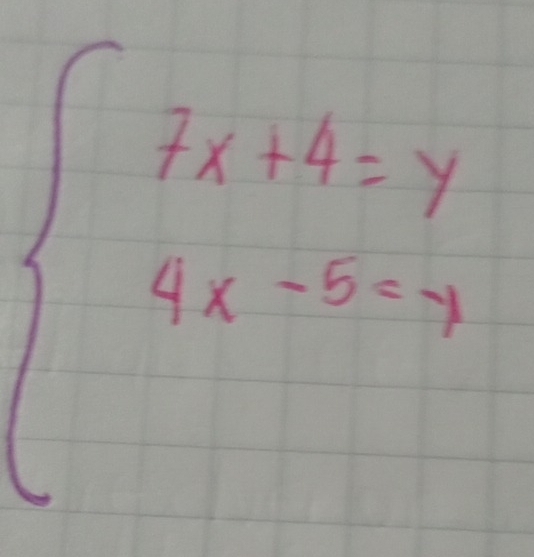 7x + 4 = y
4x - 5 = y